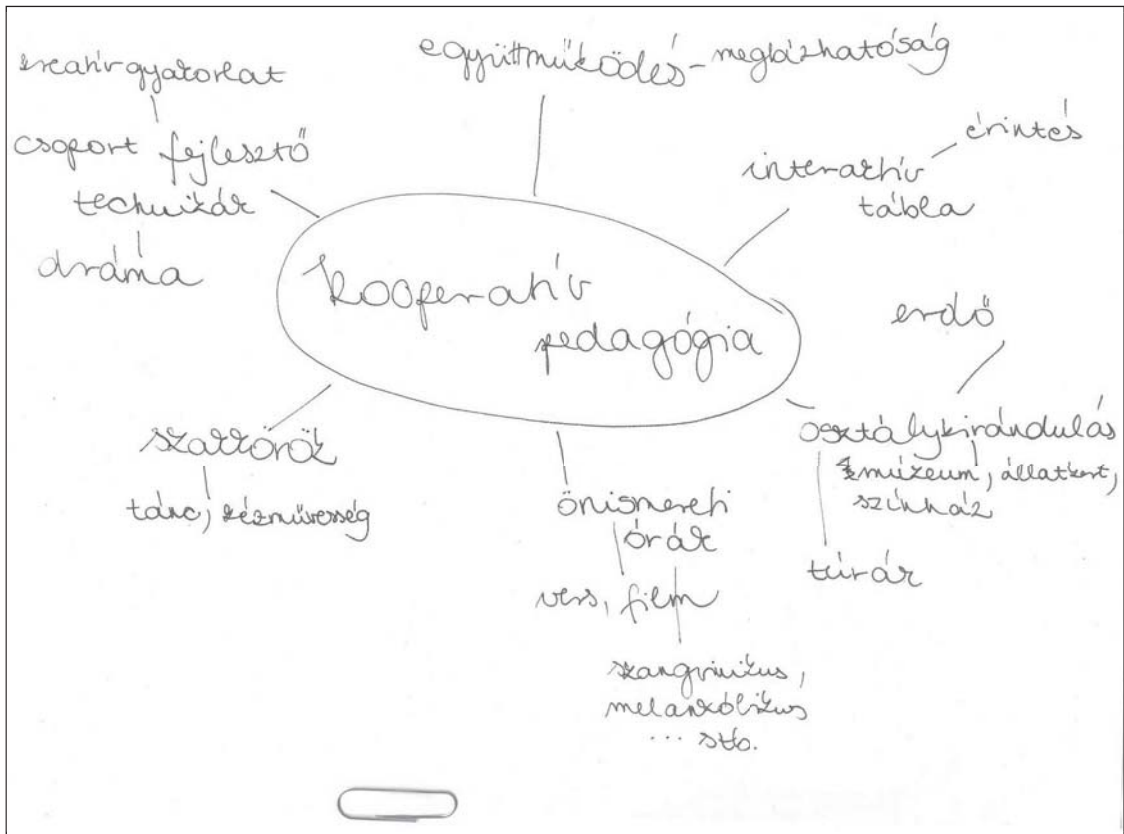 kreatív gyakorlat
csoport fejlesztő
technikák
dráma
együttműködés - megbízhatóság
interaktív
tábla
érintés
Kooperatív
pedagógia
erdő
osztálykirándulás
múzeum, állatkert,
színház
túrák
szakkörök
tánc, kézművesség
önismereti
órák
vers, film
szangvinikus,
melankólikus
... stb.